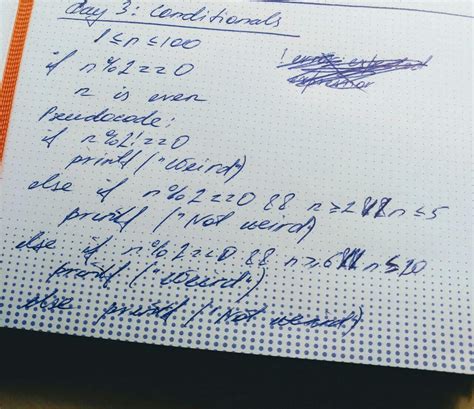 Day 3: Conditionals
1 ≤ n ≤ 100
if n % 2 == 0
n is even
Pseudocode:
if n % 2 != 0
printf ("Weird")
else if n % 2 == 0 && n ≥ 2 && n ≤ 5
printf ("Not weird)
else if n % 2 == 0 && n ≥ 6 && n ≤ 20
printf ("Weird")
else printf ("Not weird")